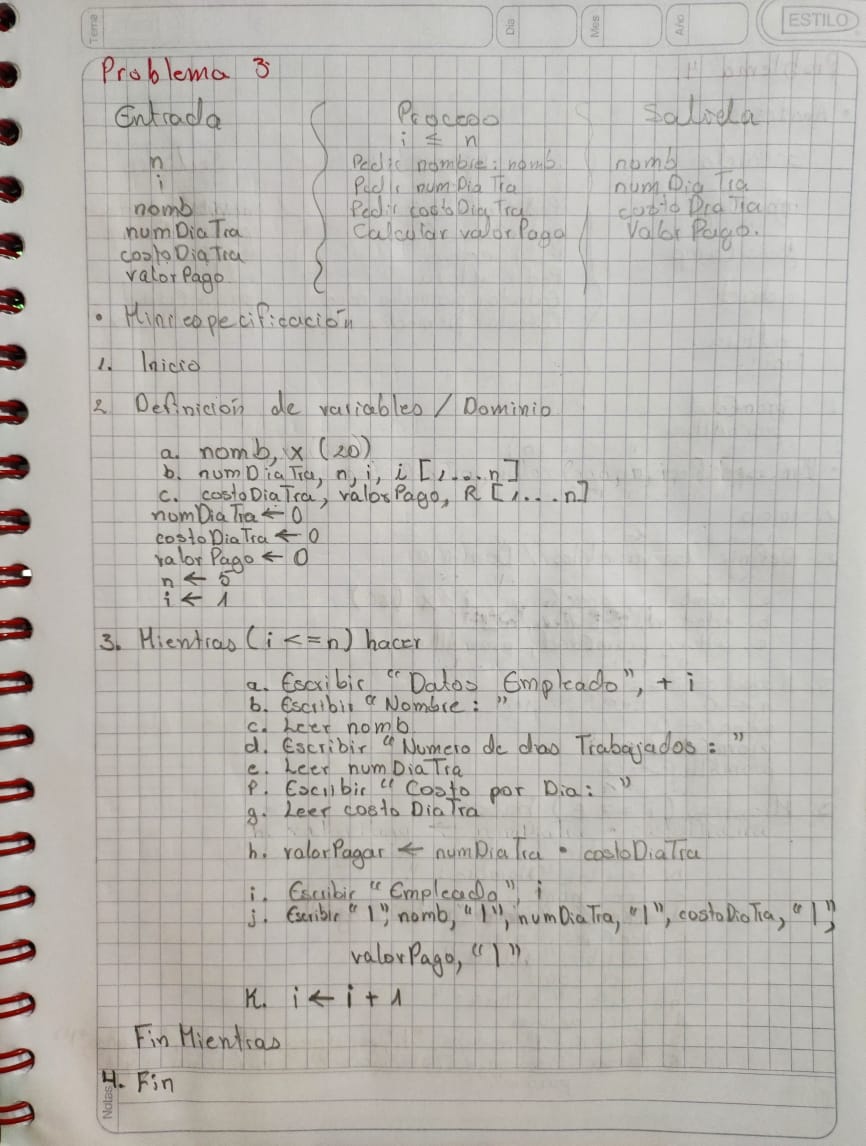 Tema
Día
Mes
Año
ESTILO
Problema 3
Entrada Proceso Salida
i ≤ n
n Pedir nombre: nomb nomb
i Pedir numDiaTra numDiaTra
nomb Pedir costoDiaTra costoDiaTra
numDiaTra Calcular valorPago ValorPago.
costoDiaTra
valorPago
• Miniespecificación
1. Inicio
2 Definición de variables / Dominio
a. nomb, x (20)
b. numDiaTra, n, i, i [1....n]
c. costoDiaTra, valorPago, R [1....n]
numDiaTra ← 0
costoDiaTra ← 0
valorPago ← 0
n ← 5
i ← 1
3. Mientras (i <= n) hacer
a. Escribir "Datos Empleado", + i
b. Escribir "Nombre: "
c. Leer nomb
d. Escribir "Numero de dias Trabajados: "
e. Leer numDiaTra
f. Escribir "Costo por Dia: "
g. Leer costo DiaTra
h. valorPagar ← numDiaTra • costoDiaTra
i. Escribir "Empleado", i
j. Escribir "|", nomb, "|", numDiaTra, "|", costoDiaTra, "|",
valorPago, "|"
K. i ← i + 1
Fin Mientras
4. Fin
Notas